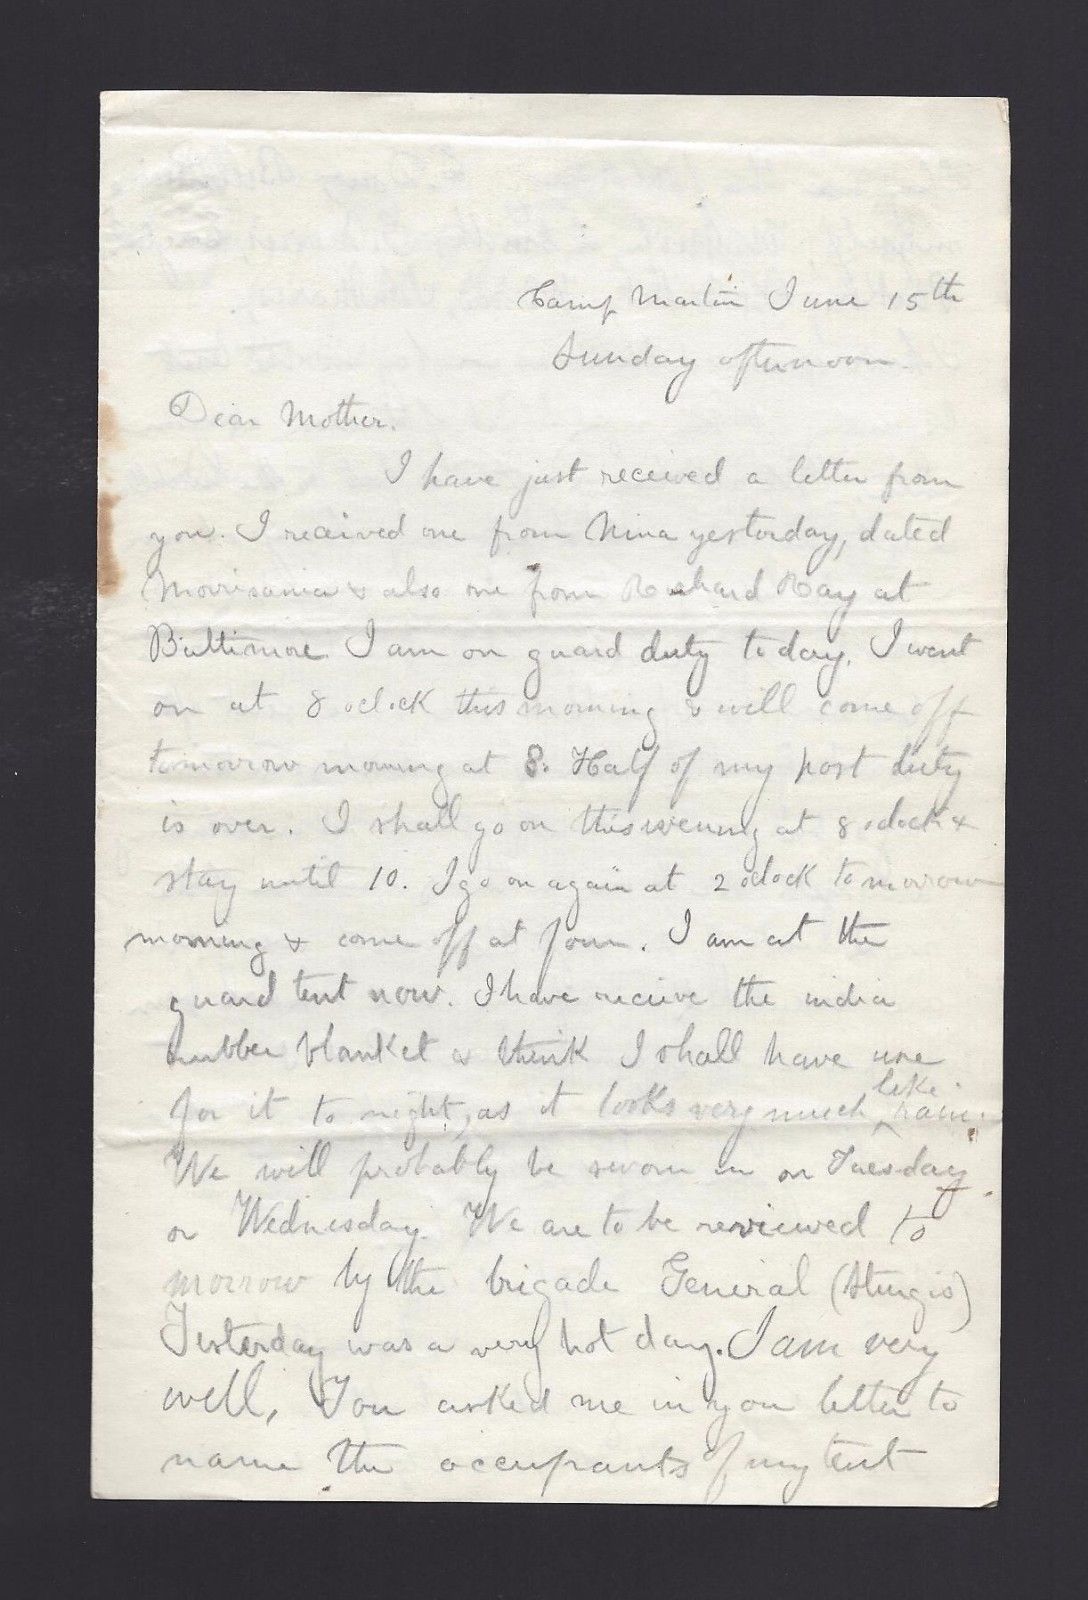 Camp Martin June 15th
Sunday afternoon.
Dear Mother.
I have just received a letter from
you. I received one from Nina yesterday, dated
Morrisania & also one from Richard Ray at
Baltimore. I am on guard duty to day. I went
on at 8 oclock this morning & will come off
tomorrow morning at 8. Half of my post duty
is over. I shall go on this evening at 8 oclock &
stay until 10. I go on again at 2 oclock tomorrow
morning & come off at four. I am at the
guard tent now. I have recieve the india
rubber blanket & think I shall have use
for it to night, as it looks very much like rain.
We will probably be sworn in on Tuesday
or Wednesday. We are to be reviewed to
morrow by the brigade General (Sturgis)
Yesterday was a very hot day. I am very
well. You asked me in you letter to
name the occupants of my tent